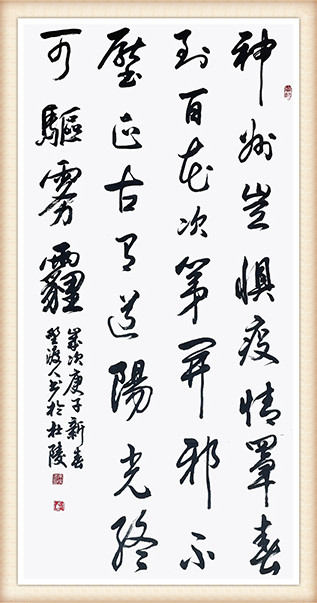 神州豈懼疫情罩春
到百花次第開邪不
壓正古有道陽光終
可驅雾霾
歲次庚子新春
渡人书於杜陵